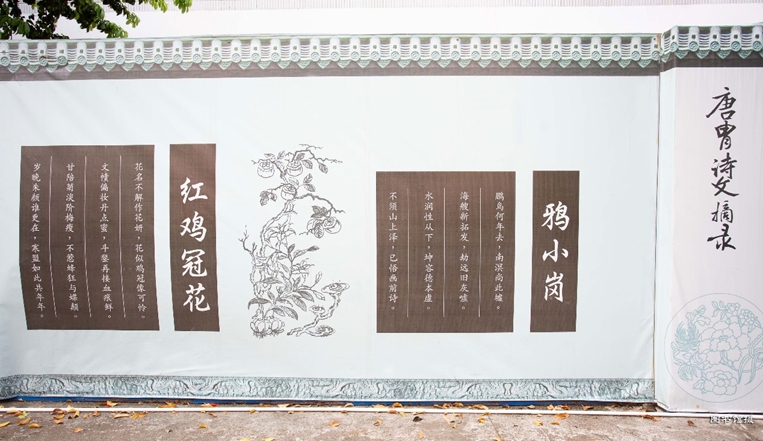 唐胄诗文摘录
鸦小岗
鹏鸟何年去，南溟尚此墟。
海艘新拓发，劫远旧灰嘘。
水润性从下，坤容德本虚。
不须山上泽，已悟画前诗。
红鸡冠花
花名不解作花妍，花似鸡冠像可怜。
文帻偏妆丹点蜜，斗罢再接血痕鲜。
甘陪菊淡阶梅瘦，不惹蜂狂与蝶颠。
岁晚朱颜谁更在，寒盟如此共年年。